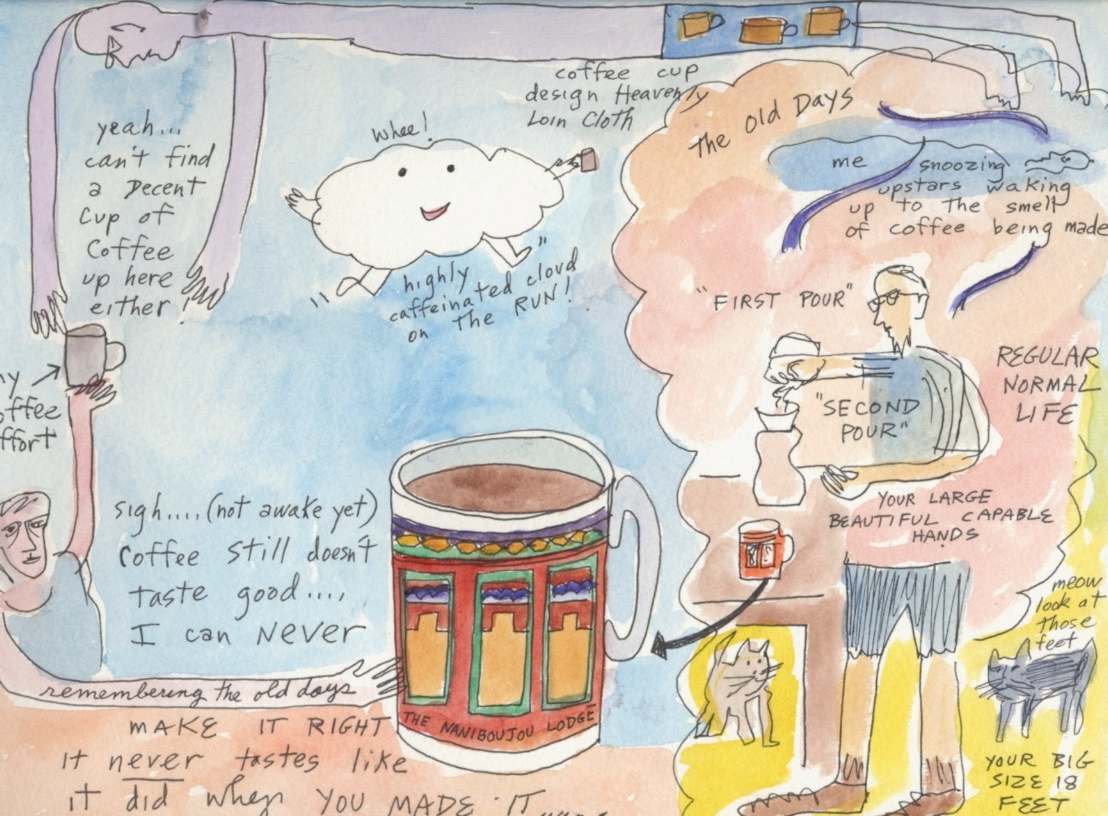 coffee cup
design Heavenly
Loin Cloth
The Old Days
yeah...
can't find
a Decent
Cup of
Coffee
up here
either!
Whee!
"highly
caffeinated cloud
on The RUN!"
me snoozing
upstars waking
up to The smell
of coffee being made
"FIRST POUR"
"SECOND
POUR"
REGULAR
NORMAL
LIFE
YOUR LARGE
BEAUTIFUL CAPABLE
HANDS
meow
look at
those
feet
YOUR BIG
SIZE 18
FEET
sigh....(not awake yet)
Coffee still doesn't
taste good....,
I can NEVER
remembering the old days
MAKE IT RIGHT
it never tastes like
it did when YOU MADE IT....
THE NANIBOUJOU LODGE